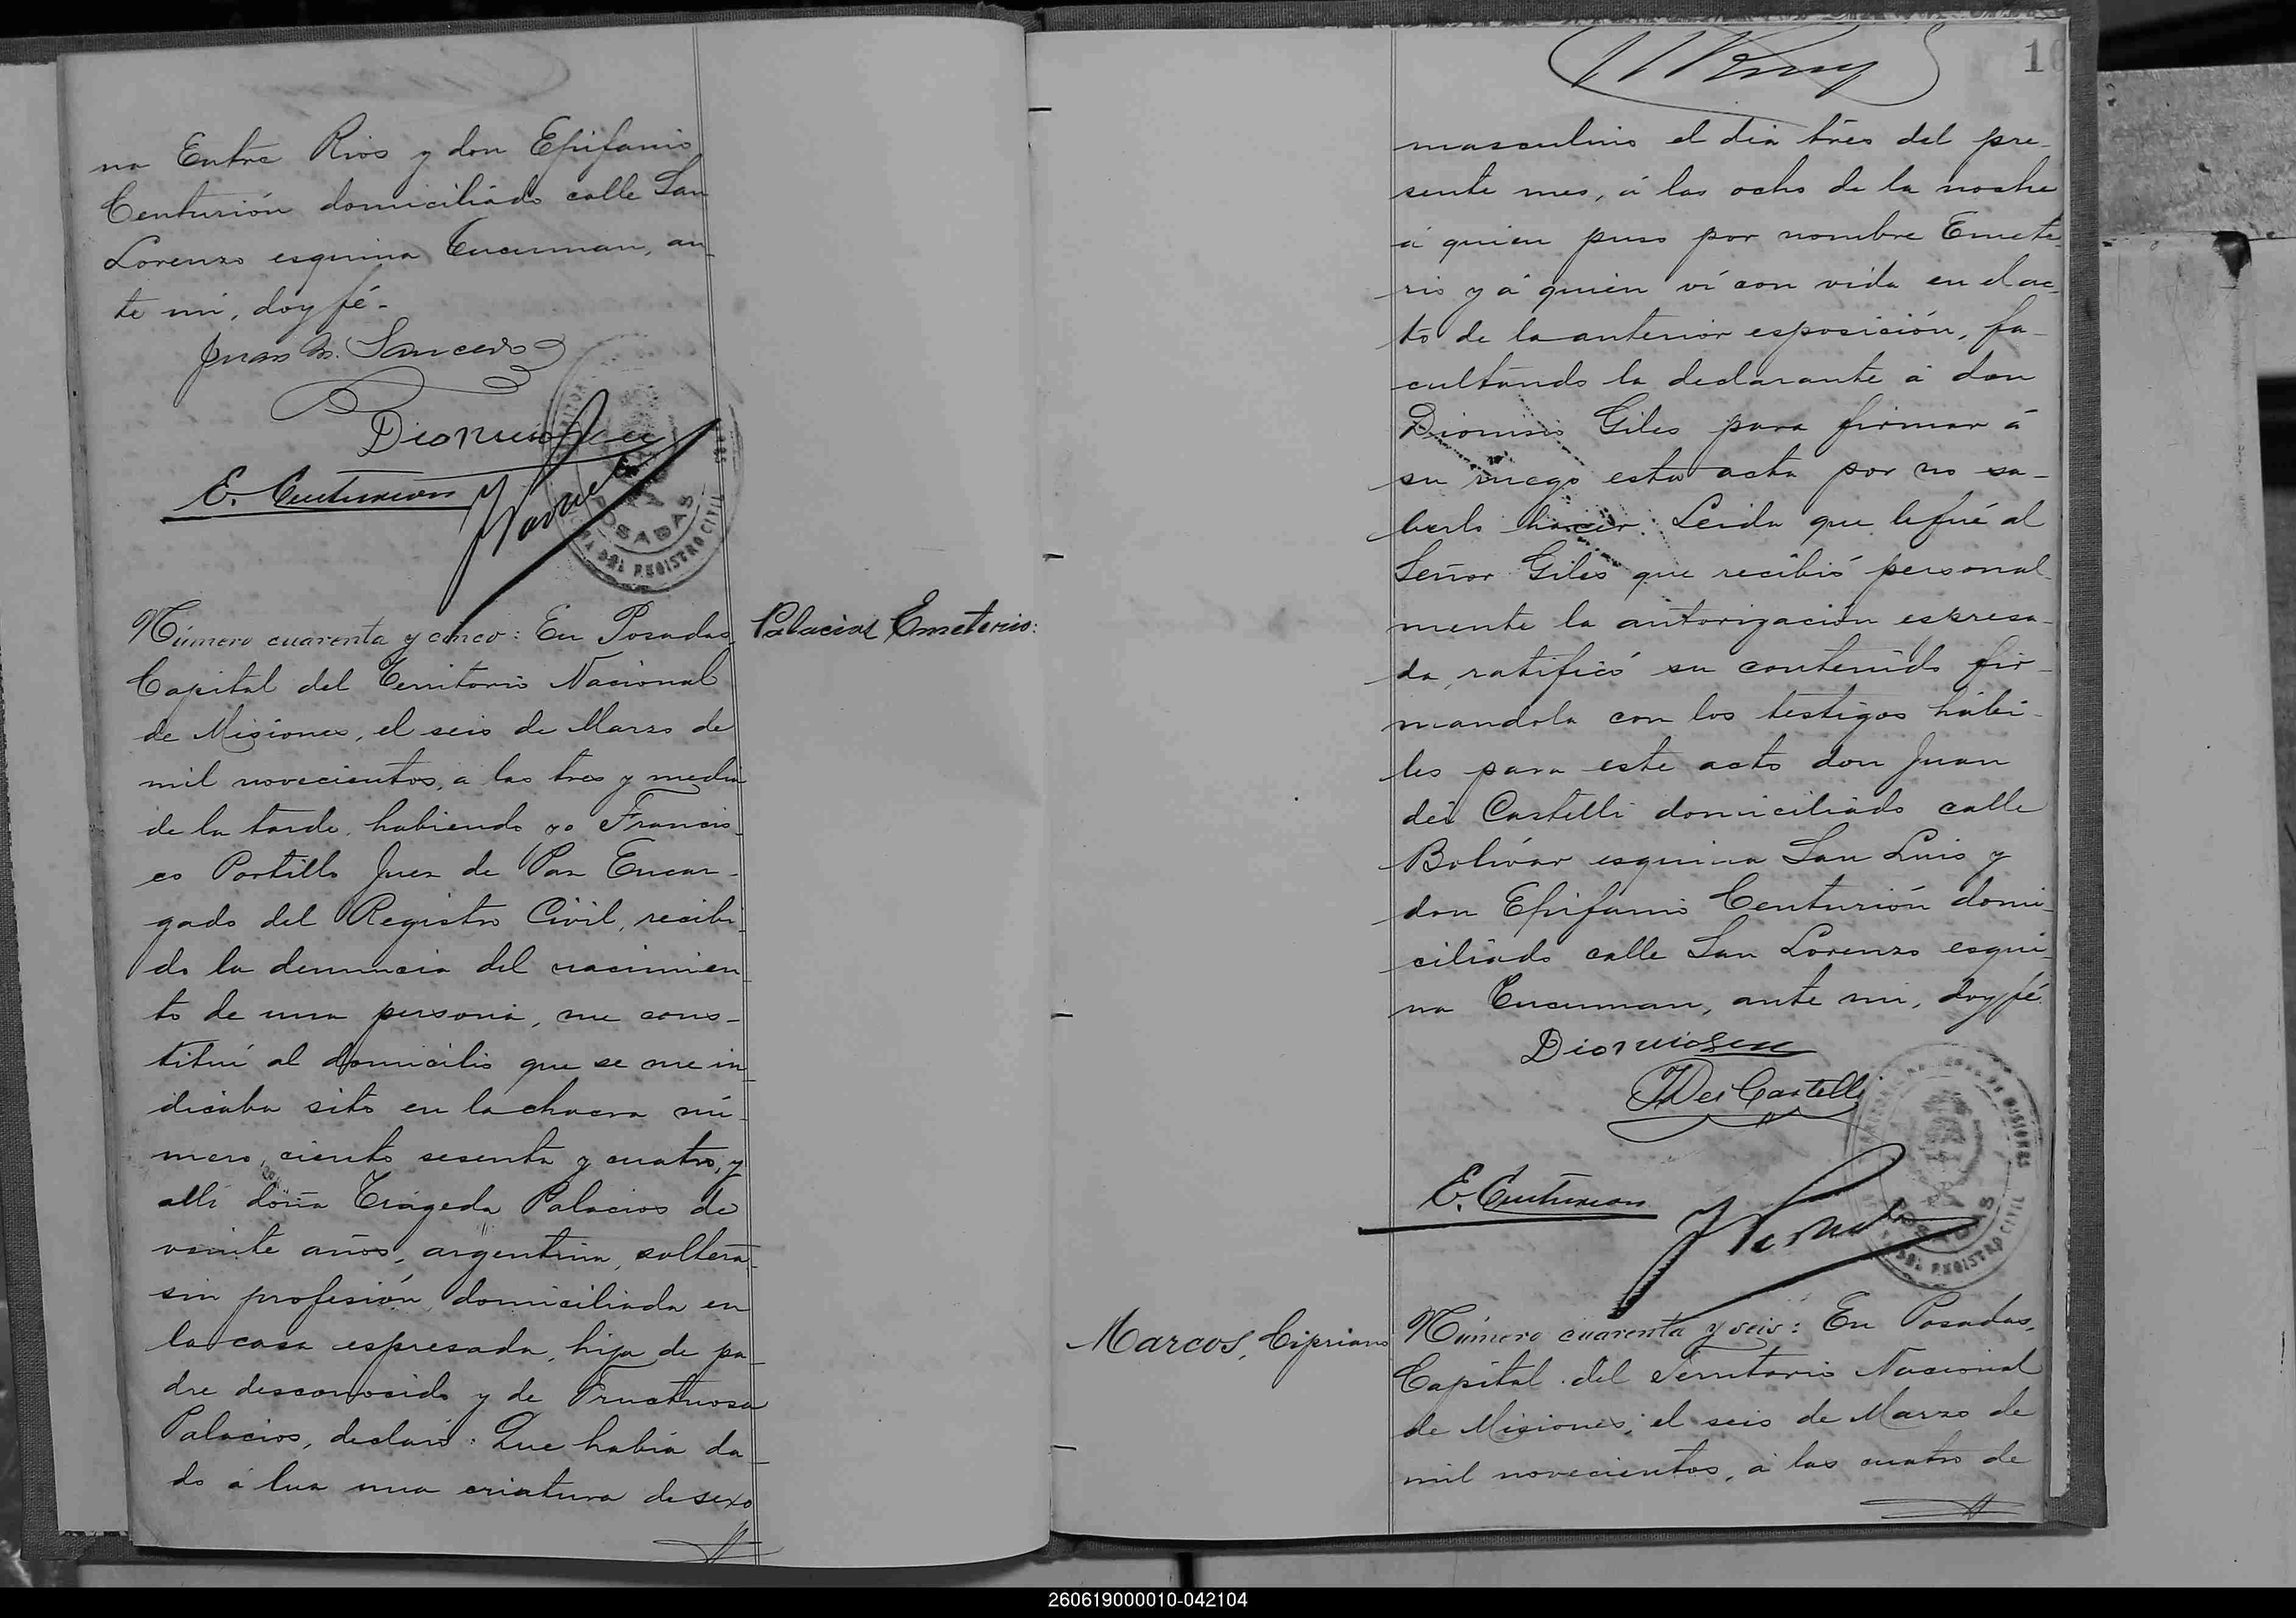 na Entre Rios y don Epifanio
Centurión domiciliado calle San
Lorenzo esquina Tucuman, an-
te mi, doy fé.
Juan M. Sancedo
Dionisio Giles
E. Centurion
POSADAS
DEL REGISTRO CIVIL
Número cuarenta y cinco: En Posadas,
Palacios Emeterio:
Capital del Territorio Nacional
de Misiones, el seis de Marzo de
mil novecientos, a las tres y media
de la tarde, habiendo yo Francis-
co Portillo Juez de Paz Encar-
gado del Registro Civil, recibi-
do la denuncia del nacimien-
to de una persona, me cons-
tituí al domicilio que se me in-
dicaba sito en la chacra nú-
mero, ciento sesenta y cuatro, y
alli doña Trageda Palacios de
veinte años, argentina, soltera
sin profesión, domiciliada en
la casa espresada, hija de pa-
dre desconocido y de Fructuosa
Palacios, declaró: Que había da-
do á luz una criatura de sexo
16
masculino el dia tres del pre-
sente mes, á las ocho de la noche
á quien puso por nombre Emete-
rio y á quien ví con vida en el ac-
to de la anterior esposición, fa-
cultando la declarante á don
Dionisio Giles para firmar á
su ruego esta acta por no sa-
berlo hacer. Leida que le fué al
Señor Giles que recibió personal-
mente la autorización espresa-
da, ratificó su contenido fir-
mandola con los testigos hábi-
les para este acto don Juan
dei Castelli domiciliado calle
Bolívar esquina San Luis y
don Epifanio Centurión domi-
ciliado calle San Lorenzo esqui-
na Tucuman, ante mi, doy fé.
Dionisio Giles
J Dei Castelli
E. Centurion
POSADAS
DEL REGISTRO CIVIL
Marcos, Cipriano
Número cuarenta y seis: En Posadas,
Capital del Territorio Nacional
de Misiones, el seis de Marzo de
mil novecientos, á las cuatro de
260619000010-042104